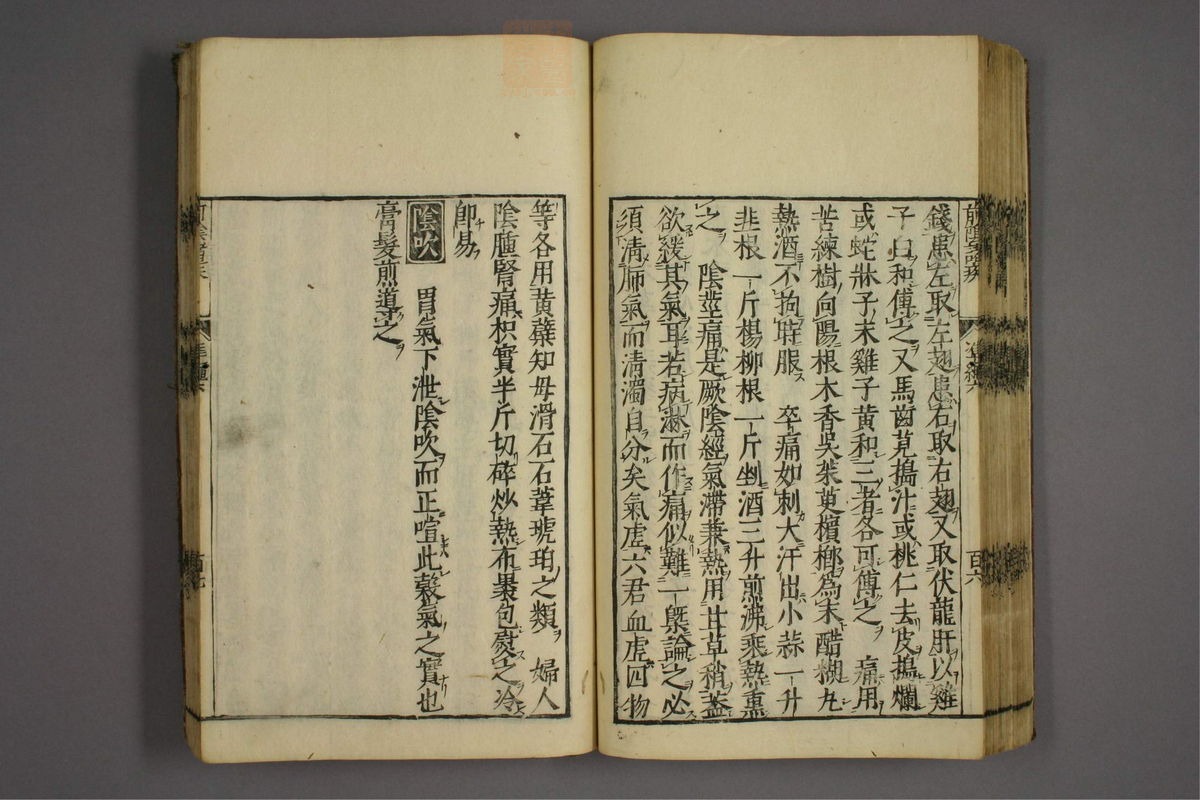 錢患左取左翅患右取右翅又取伏龍肝以雞
子白和傅之又馬齒莧搗汁或桃仁去皮搗爛
或蛇牀子末雞子黄和三者各可傅之　痛用
苦練樹向陽根木香吳茱萸檳榔為末醋糊丸
熱酒不拘時服　卒痛如刺大汗出小蒜一升
韭根一斤楊柳根一斤剉酒三升煎沸乘熱熏
之　陰莖痛是厥陰經氣滯兼熱用甘草稍蓋
欲緩其氣耳若病淋而作痛似難一槩論之必
須清肺氣而清濁自分矣氣虛六君血虛四物
等各用黄蘗知母滑石石葦琥珀之類　婦人
陰腫腎痛枳實半斤切碎炒熱布裹包熨之冷
即易
陰吹　胃氣下泄陰吹而正喧此穀氣之實也
膏髮煎導之